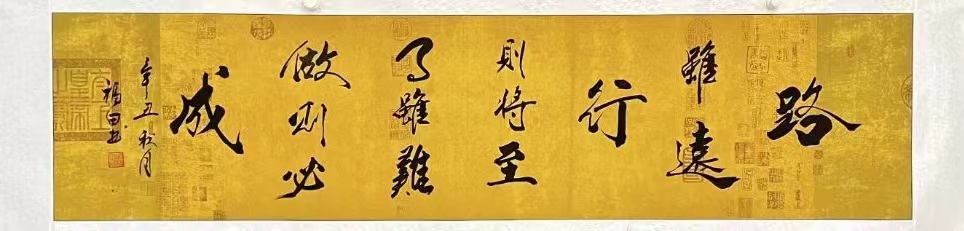 路
雖遠
行
則将至
事雖難
做則必
成
辛丑秋月
福田书